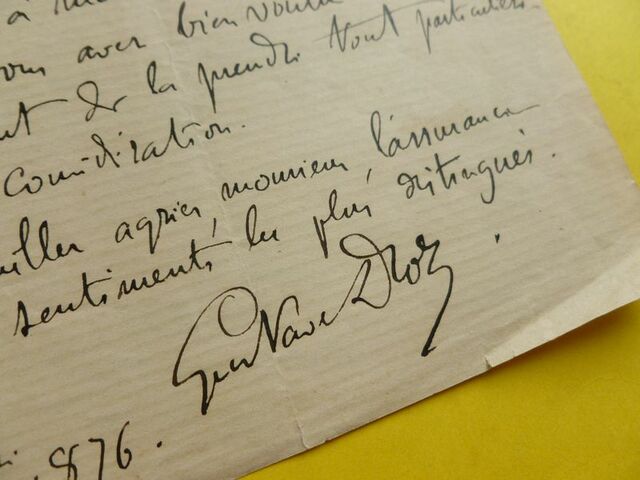 avez bien voulu
de la prendre tout particulière
considération.
agréer, monsieur, l'assurance
sentiments les plus distingués.
Gustave Droz
1876.